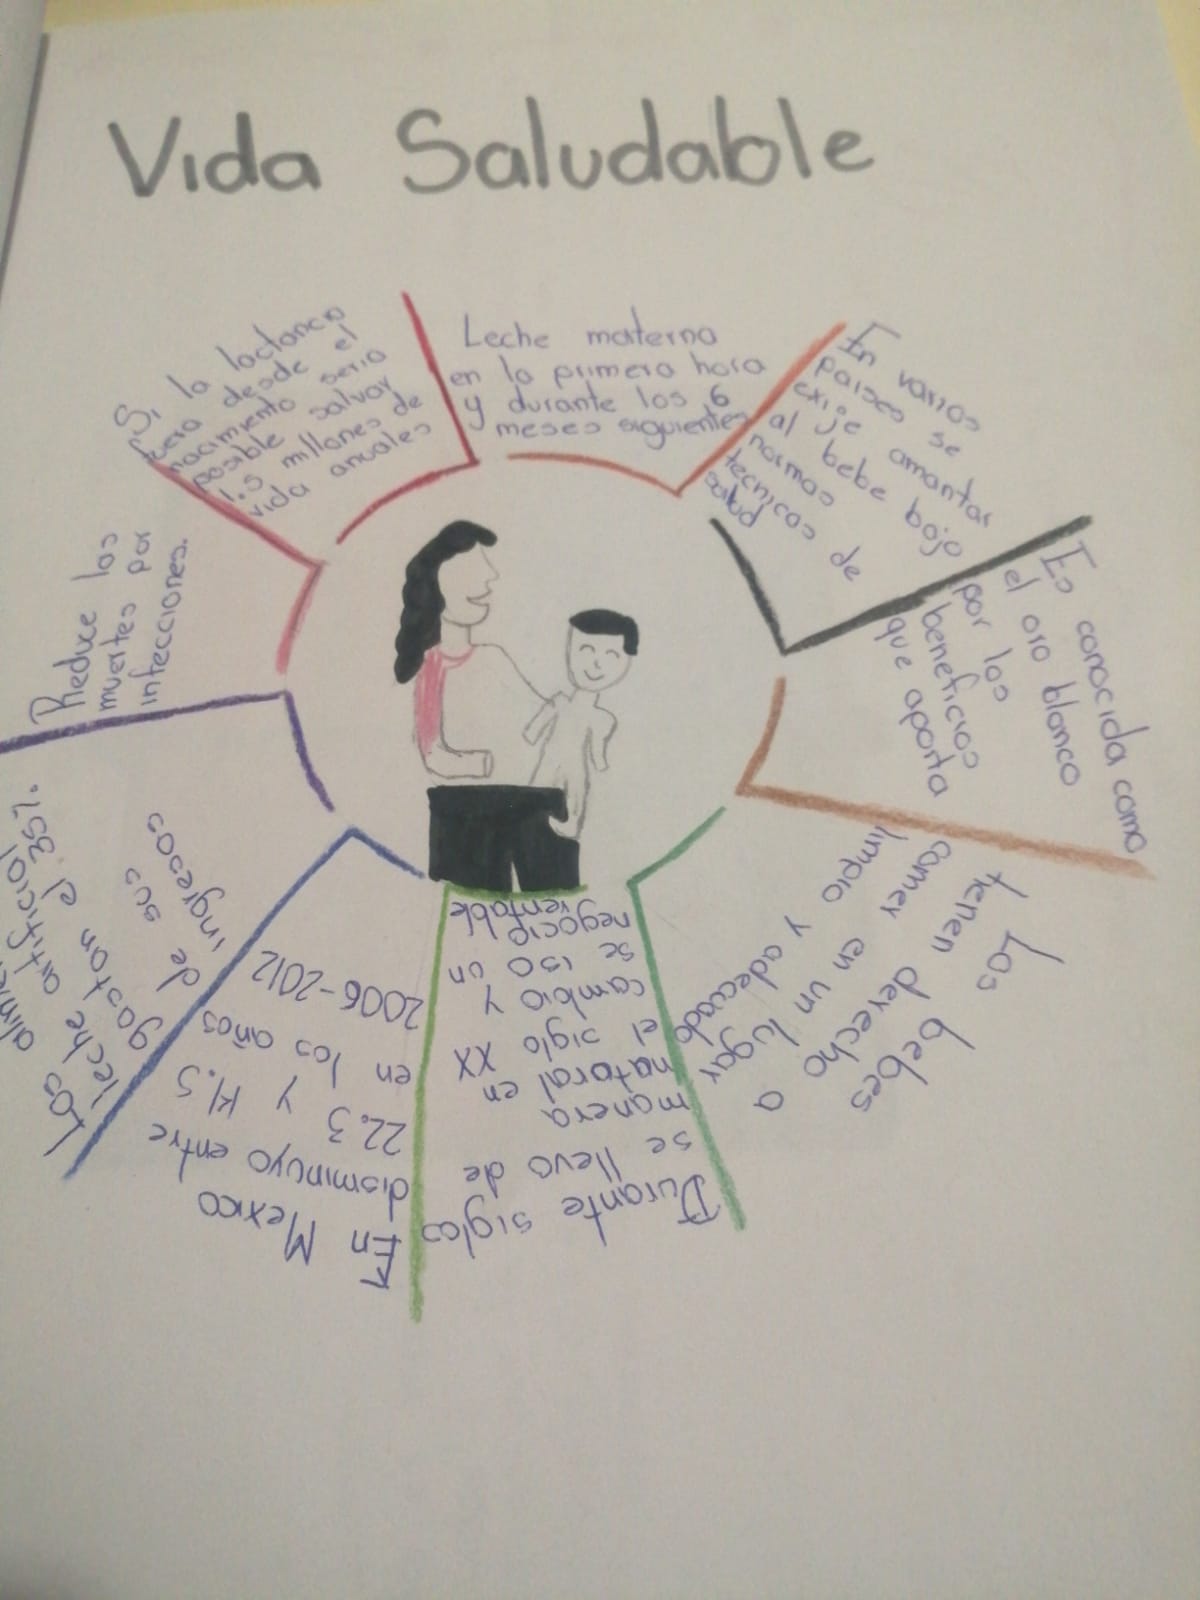 Vida Saludable
Leche materna
en la primera hora
y durante los 6
meses siguientes
En varios
paises se
exije amantar
al bebe bajo
normas
tecnicas de
salud
Es conocida como
el oro blanco
por los
beneficios
que aporta
Los bebes
tienen derecho a
comer en un lugar
limpio y adecuado
Durante siglos
se llevo de
manera
natural en
el siglo XX
cambio y
se iso un
negocio
rentable
En Mexico
disminuyo entre
22.3 y 14.5
en los años
2006-2012
Los
leche artificial
gastan el 35%
de sus
ingresos
Reduce las
muertes por
infecciones.
Si la lactanca
fuera desde el
nacimiento seria
posible salvar
1.5 millones de
vida anuales